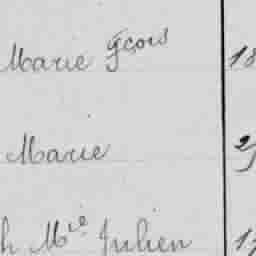 Marie Fçois 18
Marie 2
h M^ie Julien 17